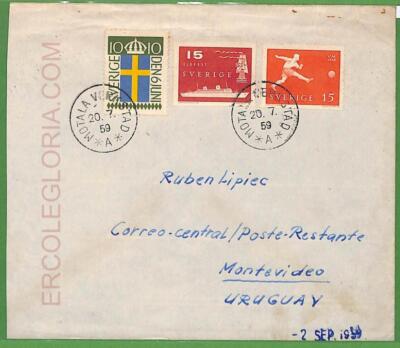 10 10
SVERIGE
DEN 6 JUNI
15
SVERIGE
SVERIGE 15
MOTALA VERKSTAD
20. 7.
59
* A *
MOTALA VERKSTAD
20. 7.
59
* A *
Ruben Lipiec
Correo-central/Poste-Restante
Montevideo
URUGUAY
-2 SEP. 1959
ERCOLEGLORIA.COM